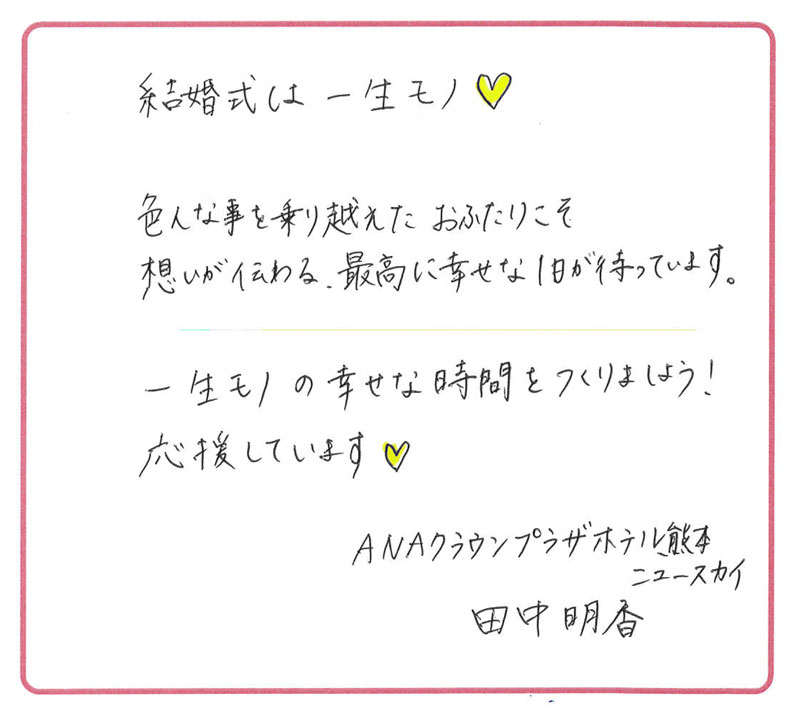 結婚式は一生モノ♡
色んな事を乗り越えた おふたりこそ
想いが伝わる、最高に幸せな1日が待っています。
一生モノの幸せな時間をつくりましょう!
応援しています♡
ANAクラウンプラザホテル熊本
ニュースカイ
田中明香